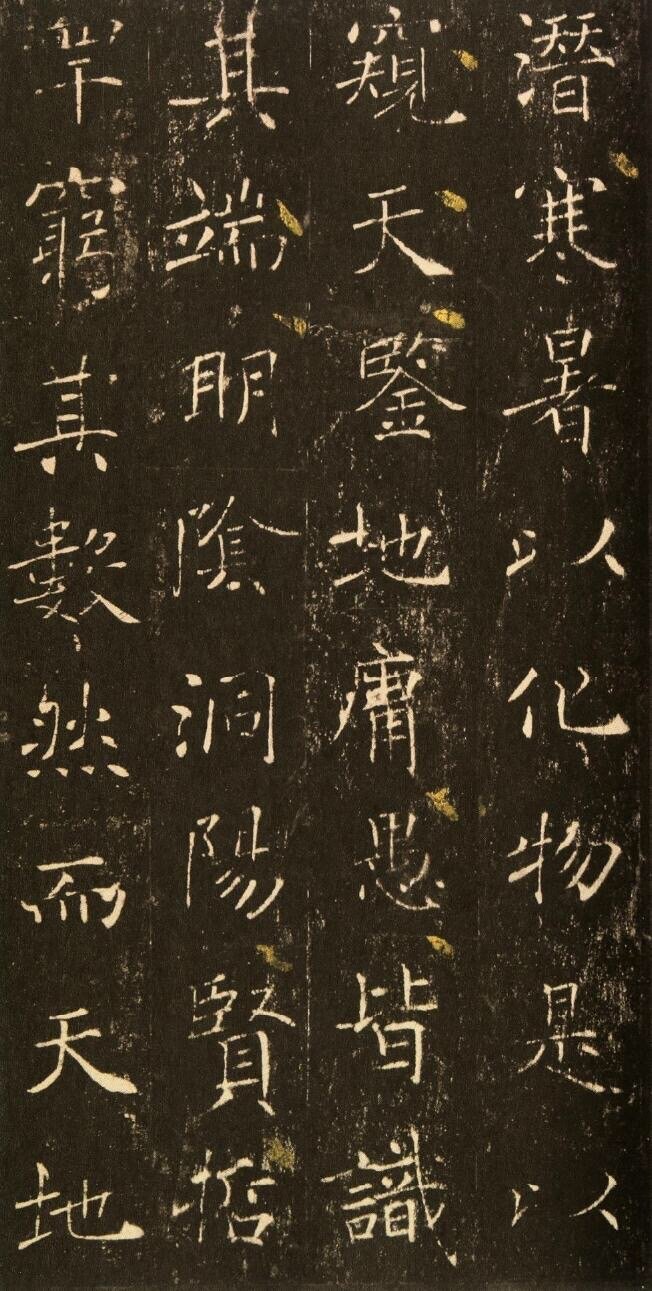 潛寒暑以化物是以
窺天鑒地庸愚皆識
其端明陰洞陽賢哲
罕窮其數然而天地